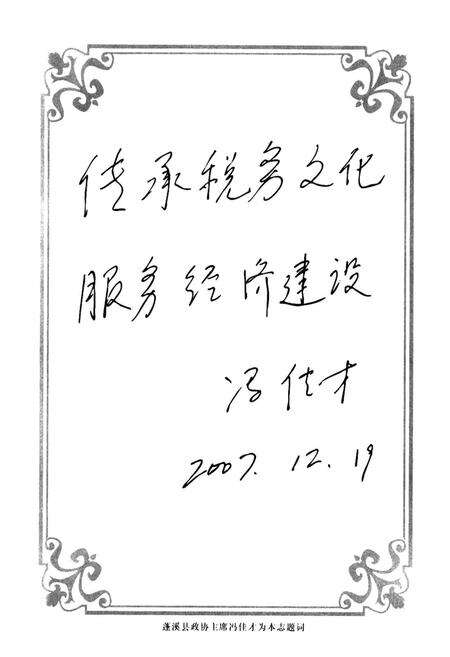 传承税务文化
服务经济建设
冯佳才
2007.12.19
蓬溪县政协主席冯佳才为本志题词